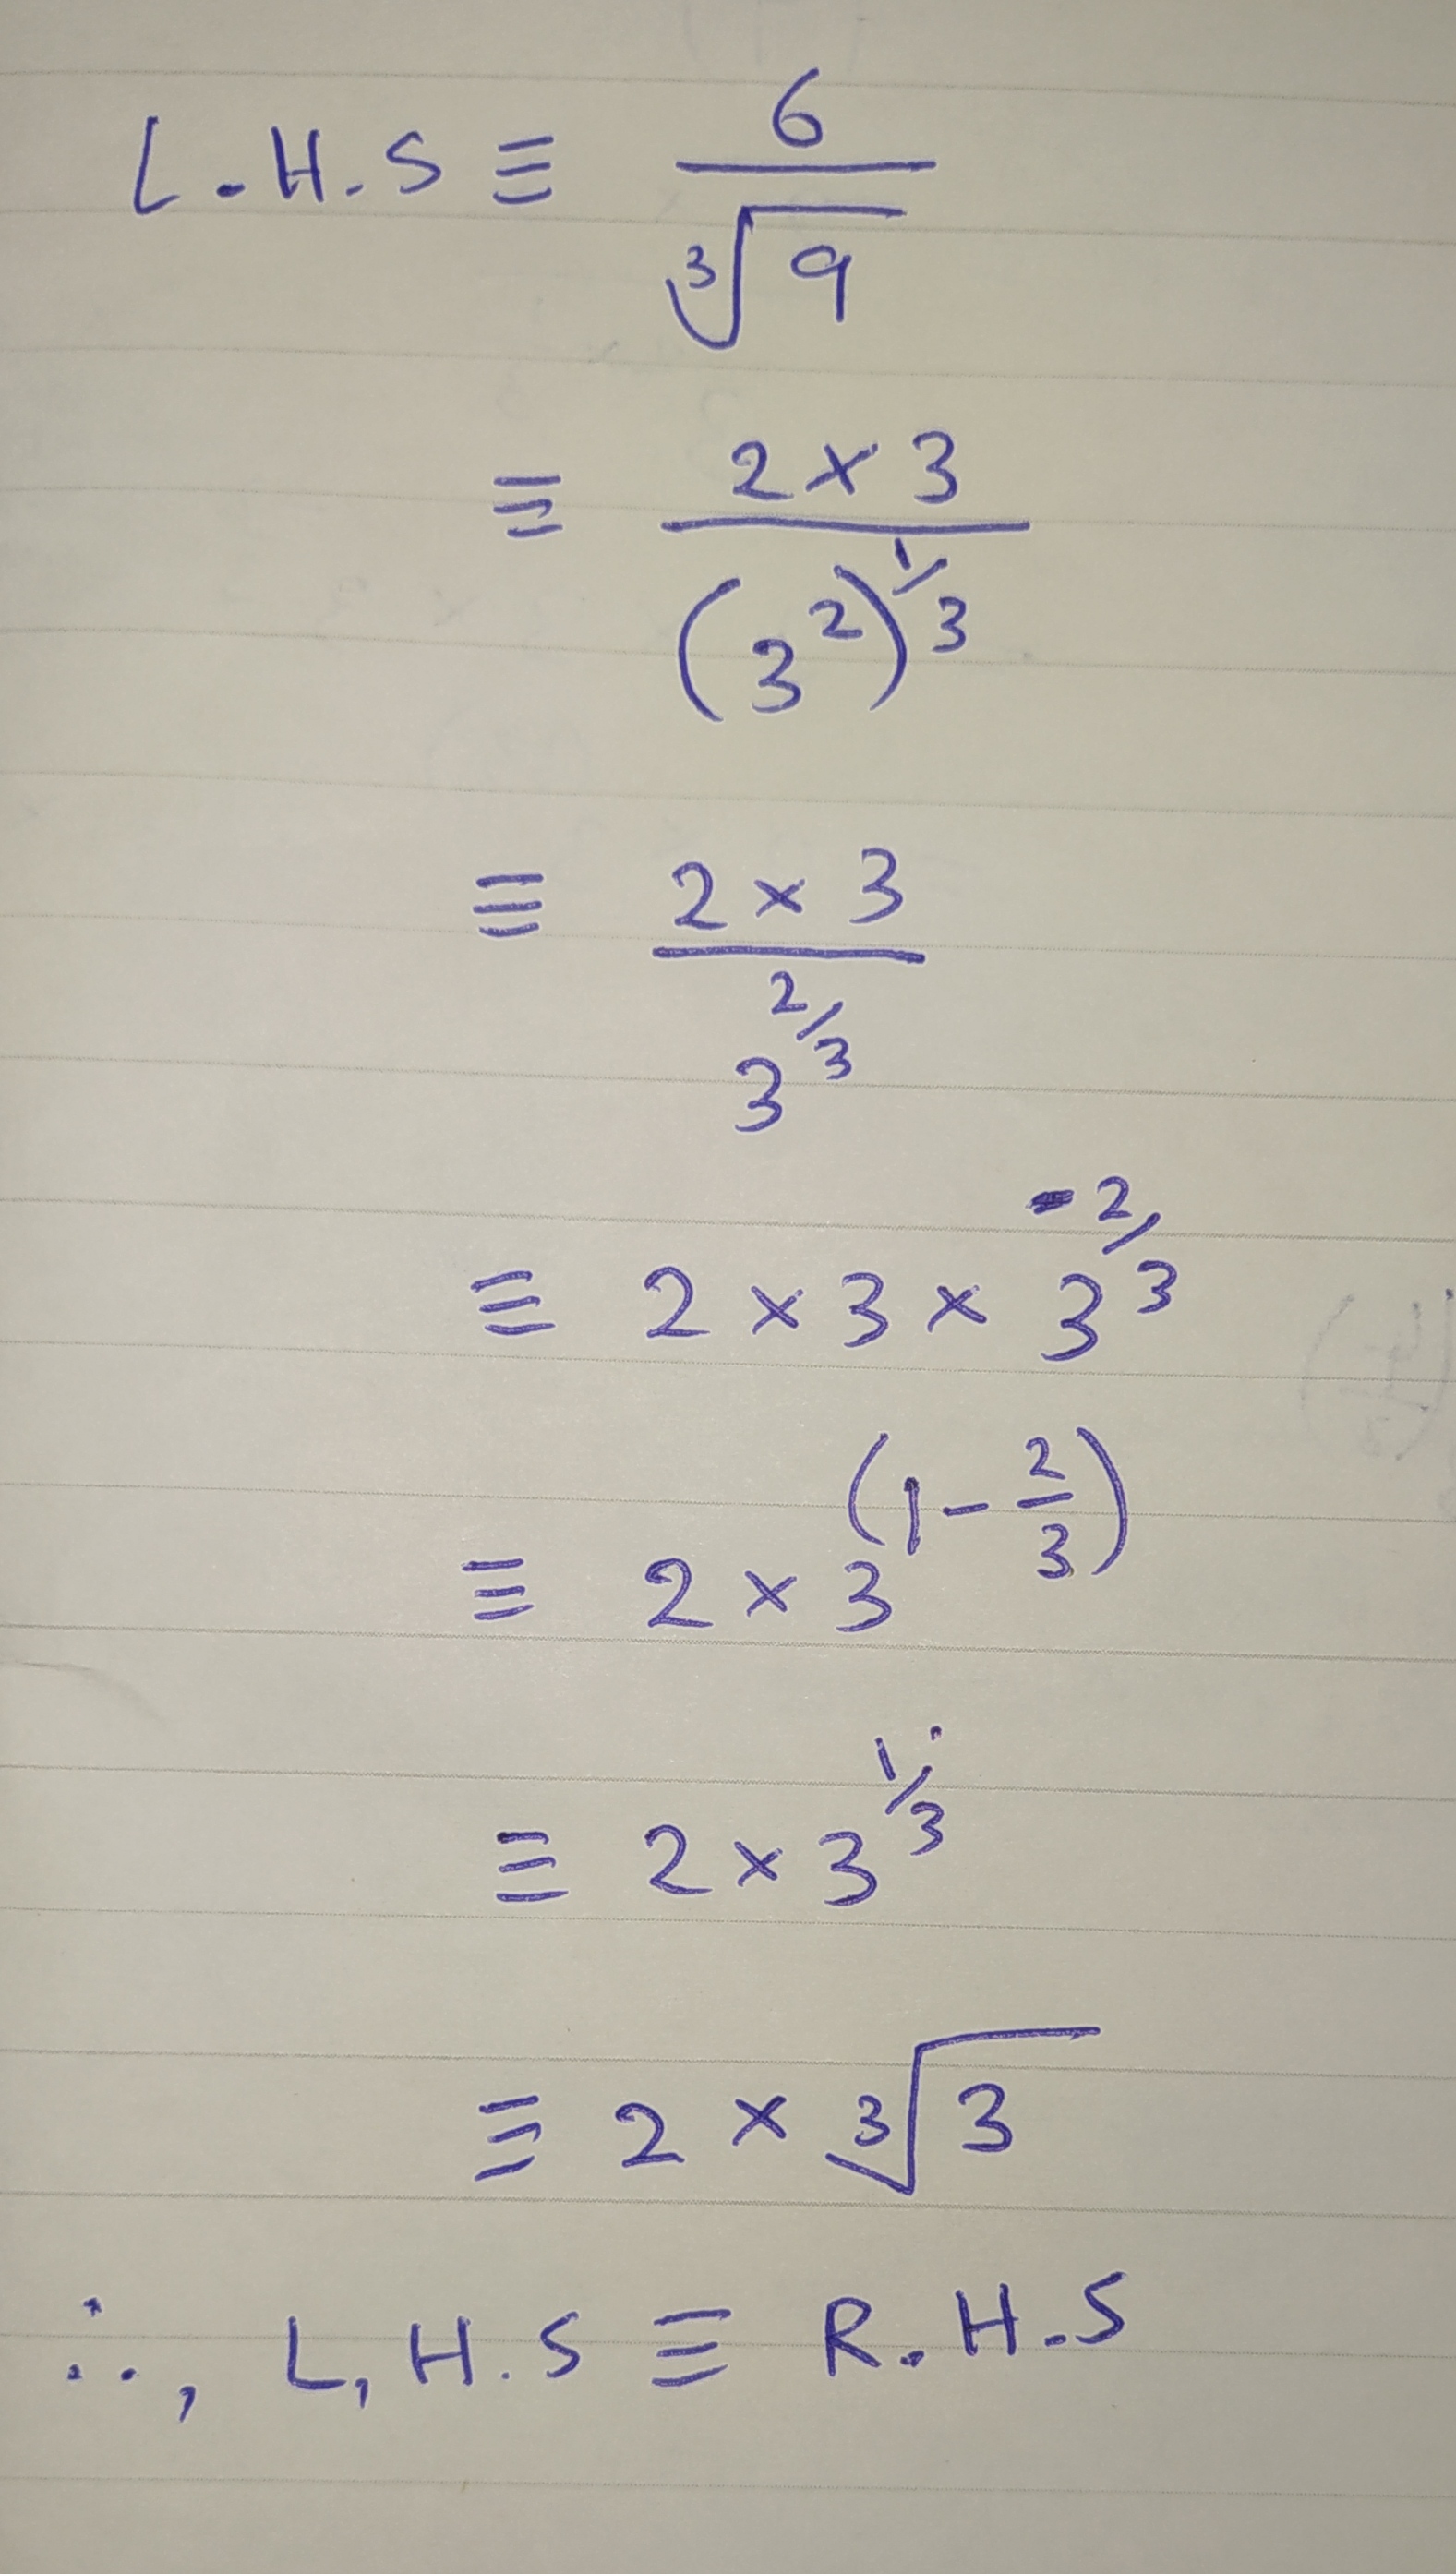 L.H.S ≡ 6 / ∛9
≡ 2 × 3 / (3²)^1/3
≡ 2 × 3 / 3^2/3
≡ 2 × 3 × 3^-2/3
≡ 2 × 3^(1 - 2/3)
≡ 2 × 3^1/3
≡ 2 × ∛3
∴, L,H.S ≡ R.H.S